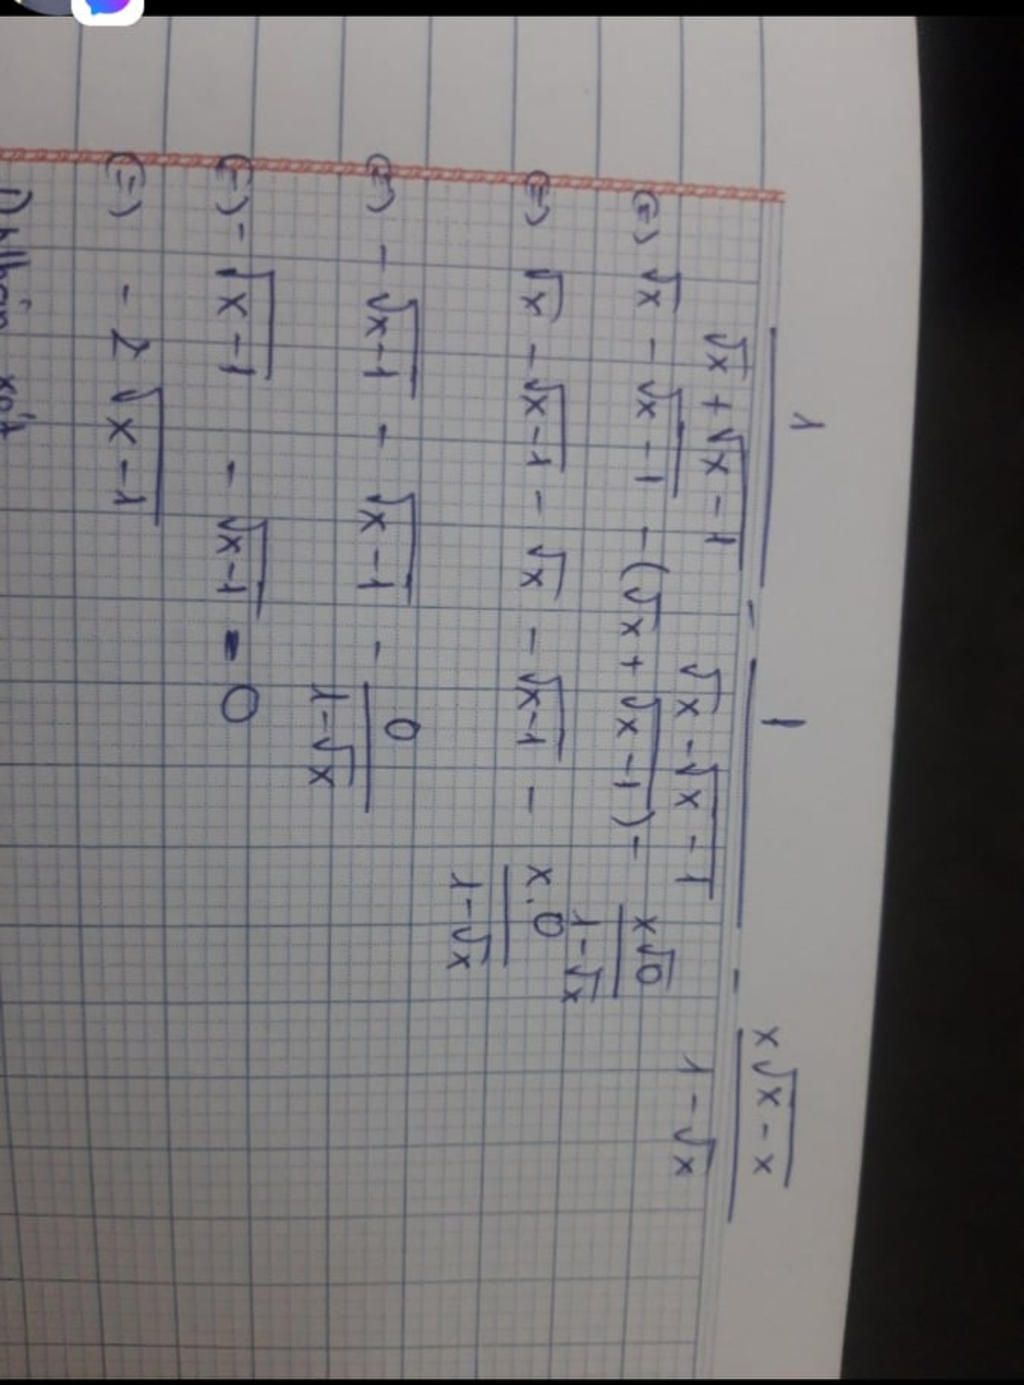 1/(√x + √(x-1)) - 1/(√x - √(x-1)) - x√(x-x)/(1-√x)
(=) √x - √(x-1) - (√x + √(x-1)) - x√0/(1-√x)
(=) √x - √(x-1) - √x - √(x-1) - x.0/(1-√x)
(=) - √(x-1) - √(x-1) - 0/(1-√x)
(=) - √(x-1) - √(x-1) = 0
(=) - 2√(x-1)